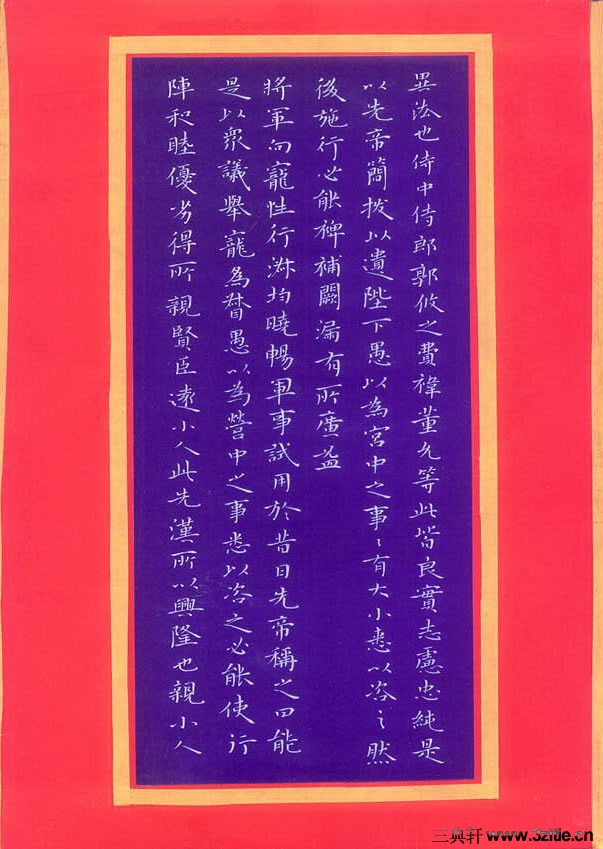 異法也侍中侍郎郭攸之費禕董允等此皆良實志慮忠純是
以先帝簡拔以遺陛下愚以為宮中之事〻有大小悉以咨之然
後施行必能裨補闕漏有所廣益
將軍向寵性行淑均曉暢軍事試用於昔日先帝稱之曰能
是以眾議舉寵為督愚以為營中之事悉以咨之必能使行
陣和睦優劣得所親賢臣遠小人此先漢所以興隆也親小人
三典轩 www.3zitie.cn